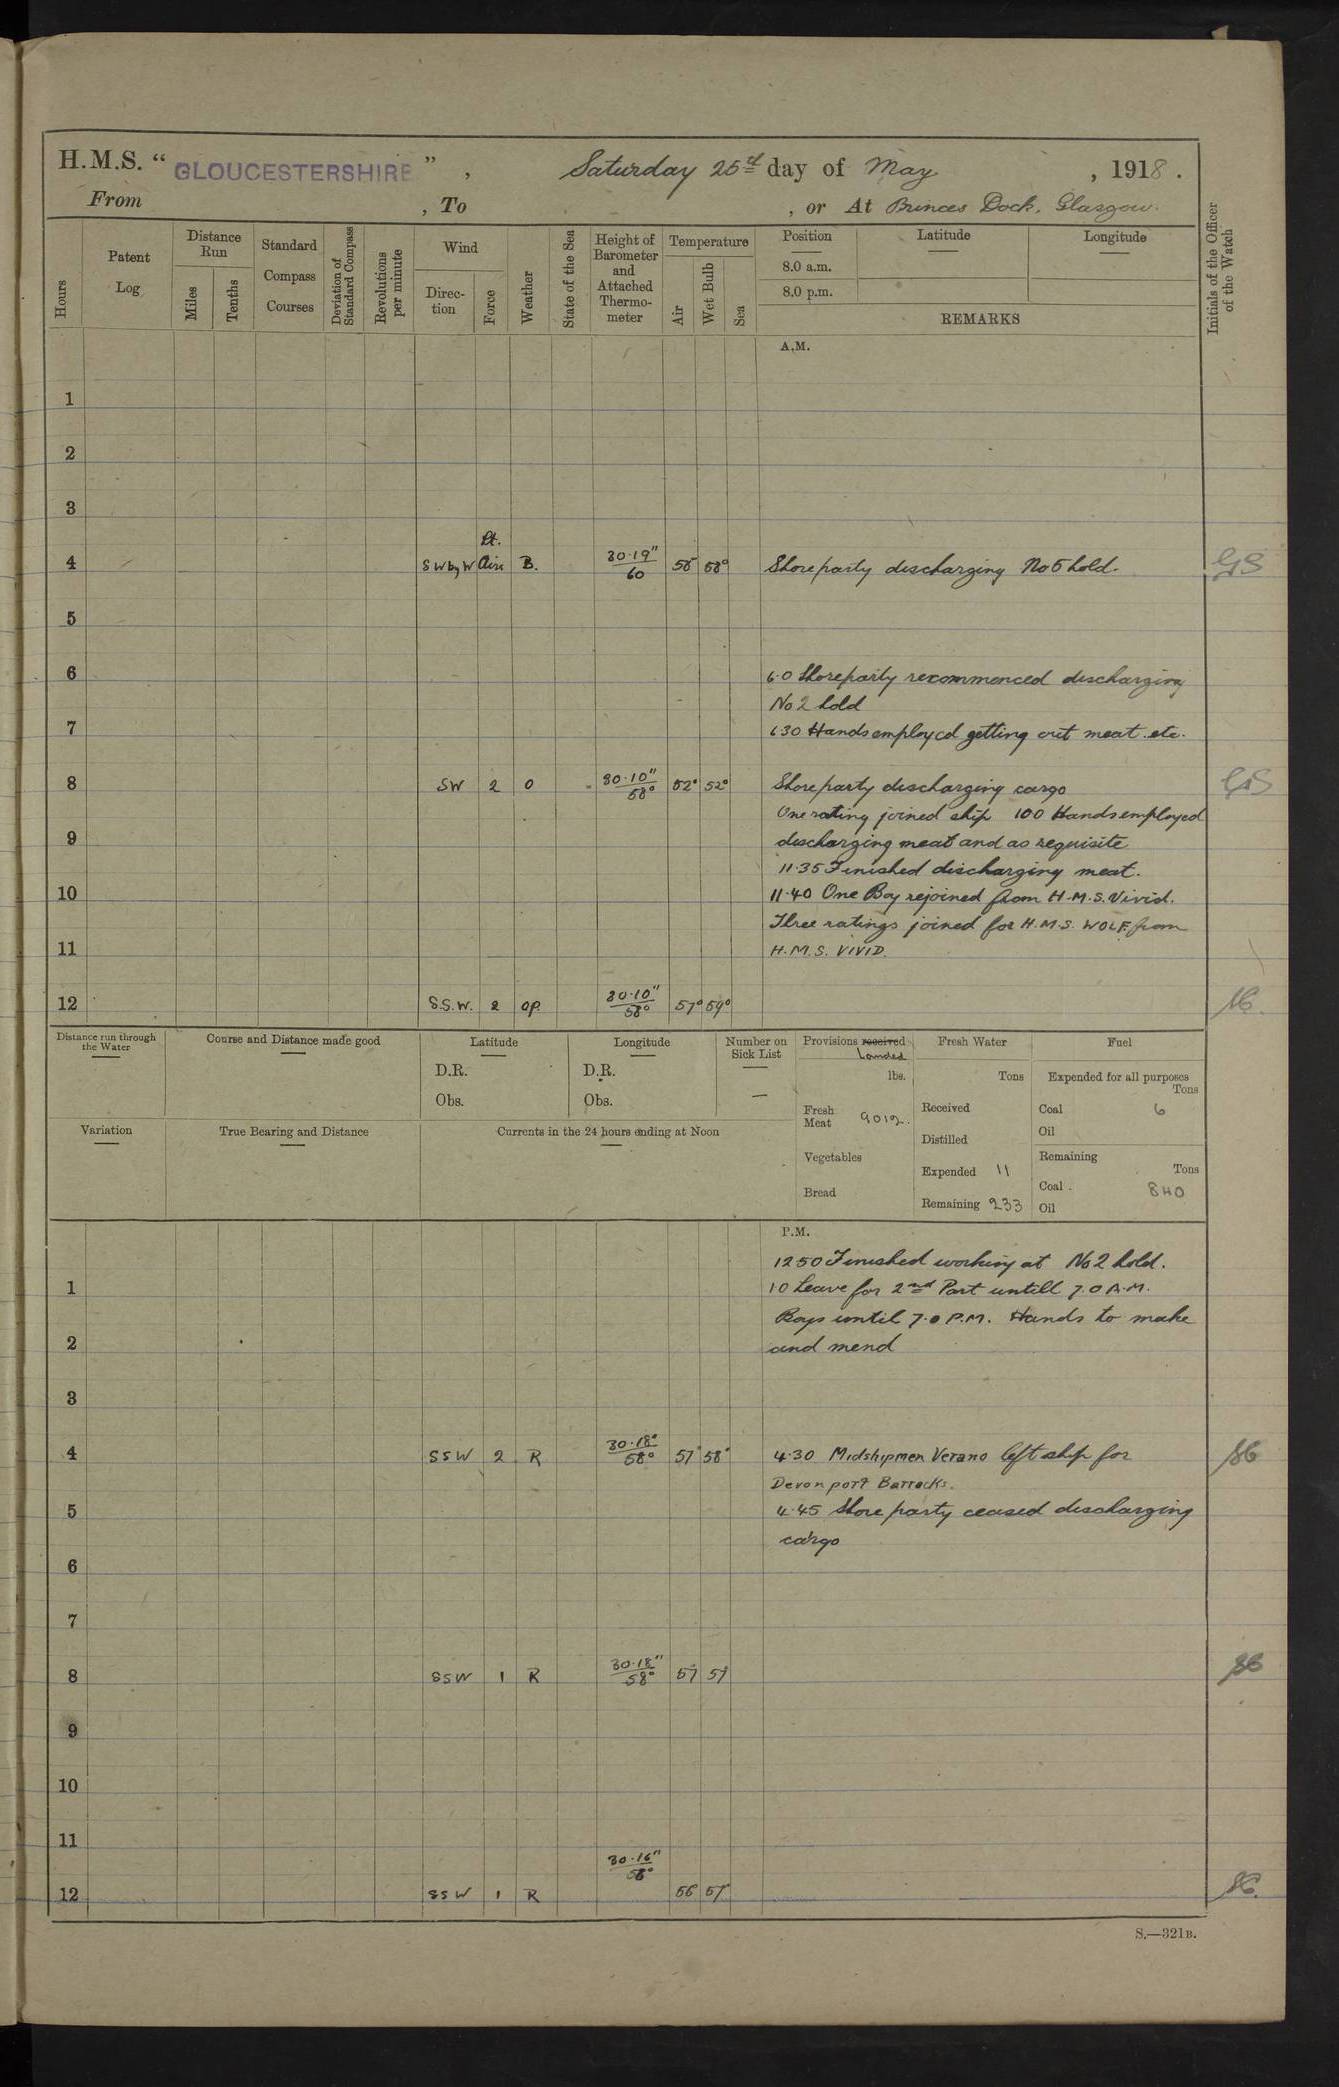 H.M.S. " GLOUCESTERSHIRE ", Saturday 25th day of May, 1918.
From , To , or At Princes Dock, Glasgow.
Hours
Patent Log
Distance Run
Miles
Tenths
Standard Compass Courses
Deviation of Standard Compass
Revolutions per minute
Wind
Direction
Force
Weather
State of the Sea
Height of Barometer and Attached Thermometer
Temperature
Air
Wet Bulb
Sea
Position
8.0 a.m.
8.0 p.m.
Latitude
Longitude
REMARKS
Initials of the Officer of the Watch
A.M.
1
2
3
4 SWbyW Lt. Airs B. 30·19" 60 58° Shore party discharging No 5 hold. GS
5
6 6·0 Shore party recommenced discharging
No 2 hold
7 6 30 Hands employed getting out meat etc.
8 SW 2 O 30·10" 58° 52° 52° Shore party discharging cargo GS
One rating joined ship 100 Hands employed
9 discharging meat and as requisite
11·35 Finished discharging meat.
10 11·40 One Boy rejoined from H.M.S. Vivid.
Three ratings joined for H.M.S. WOLF from
11 H.M.S. VIVID.
12 S.S.W. 2 OP 30·10" 58° 57°
Distance run through the Water
Course and Distance made good
Latitude
D.R.
Obs.
Longitude
D.R.
Obs.
Number on Sick List
—
Provisions received Landed
lbs.
Fresh Meat 9012.
Vegetables
Bread
Fresh Water
Tons
Received
Distilled
Expended 11
Remaining 233
Fuel
Expended for all purposes
Tons
Coal 6
Oil
Remaining
Tons
Coal 840
Oil
Variation
True Bearing and Distance
Currents in the 24 hours ending at Noon
P.M.
12 50 Finished working at No 2 hold.
1 1 0 Leave for 2nd Part untill 7.0 A.M.
Boys until 7.0 P.M. Hands to make
2 and mend
3
4 SSW 2 R 30·18" 58° 57° 58° 4·30 Midshipmen Verano left ship for
Devonport Barracks.
5 4·45 Shore party ceased discharging
cargo
6
7
8 SSW 1 R 30·18" 58° 57 57
9
10
11
12 SSW 1 R 30·16" 58° 56 57
S.—321B.